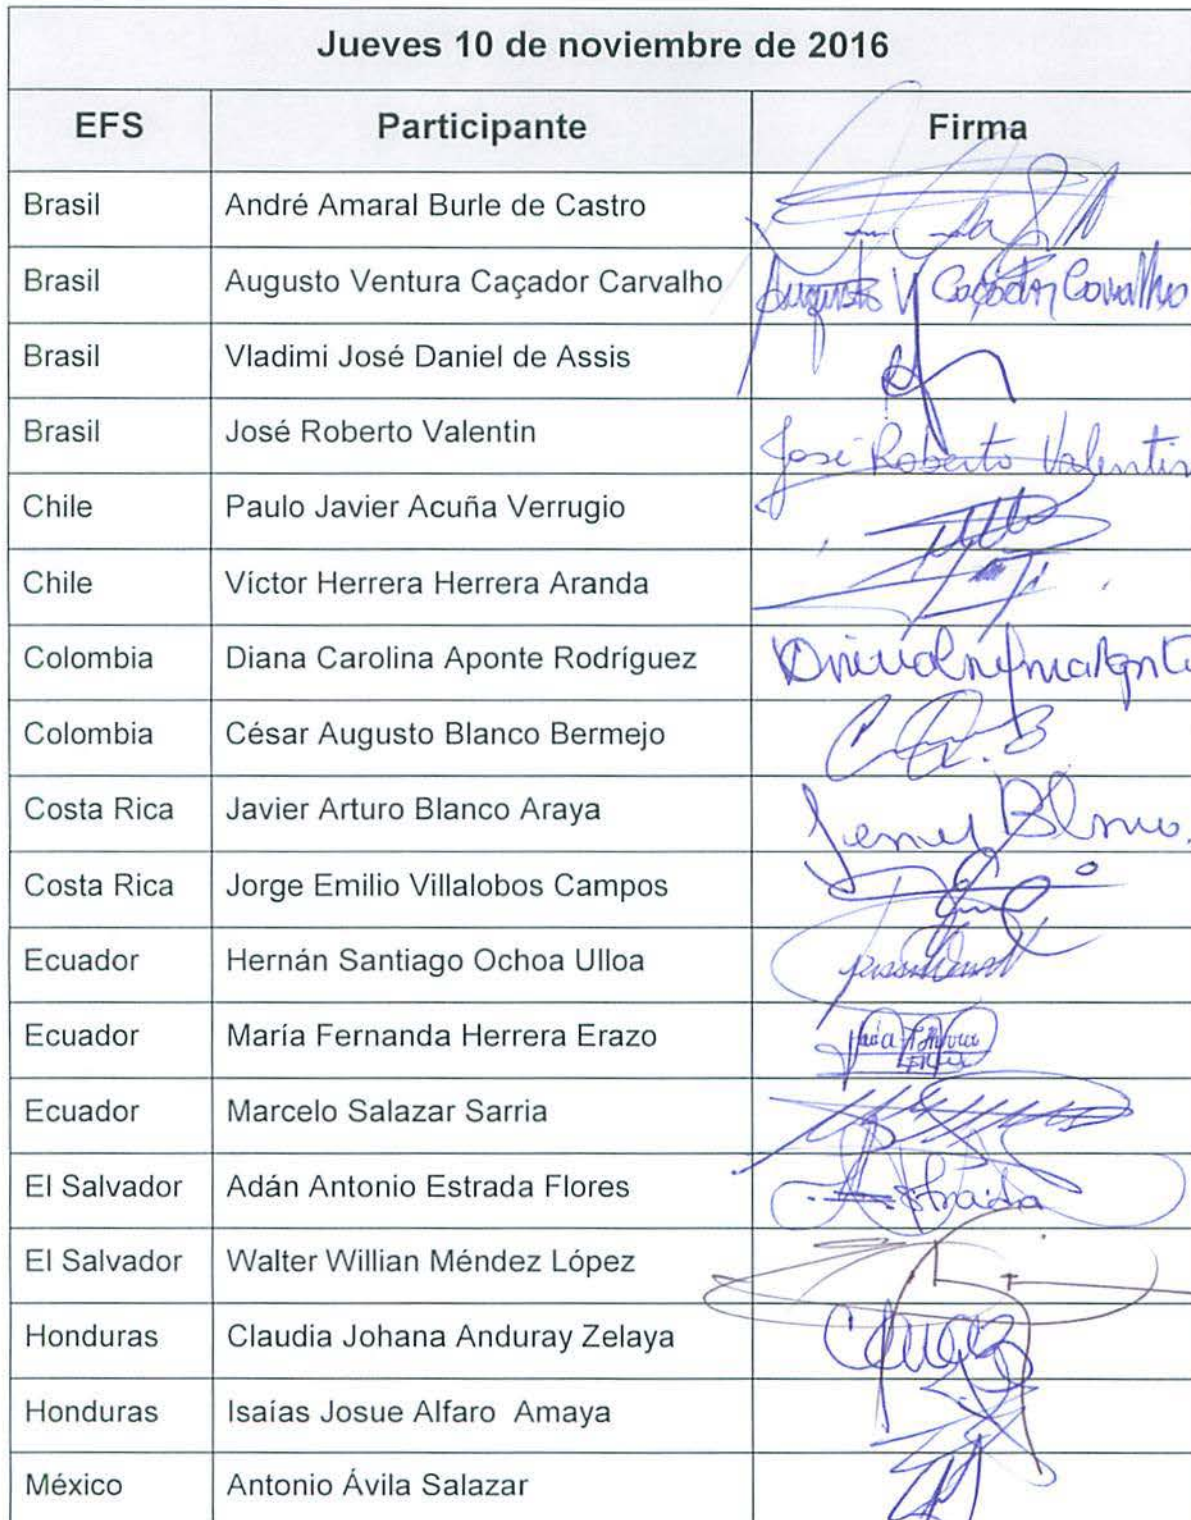 Jueves 10 de noviembre de 2016
EFS Participante Firma
Brasil André Amaral Burle de Castro
Brasil Augusto Ventura Caçador Carvalho Augusto V Caçador Carvalho
Brasil Vladimi José Daniel de Assis
Brasil José Roberto Valentin José Roberto Valentin
Chile Paulo Javier Acuña Verrugio
Chile Víctor Herrera Herrera Aranda
Colombia Diana Carolina Aponte Rodríguez
Colombia César Augusto Blanco Bermejo
Costa Rica Javier Arturo Blanco Araya
Costa Rica Jorge Emilio Villalobos Campos
Ecuador Hernán Santiago Ochoa Ulloa
Ecuador María Fernanda Herrera Erazo
Ecuador Marcelo Salazar Sarria
El Salvador Adán Antonio Estrada Flores
El Salvador Walter Willian Méndez López
Honduras Claudia Johana Anduray Zelaya
Honduras Isaías Josue Alfaro Amaya
México Antonio Ávila Salazar